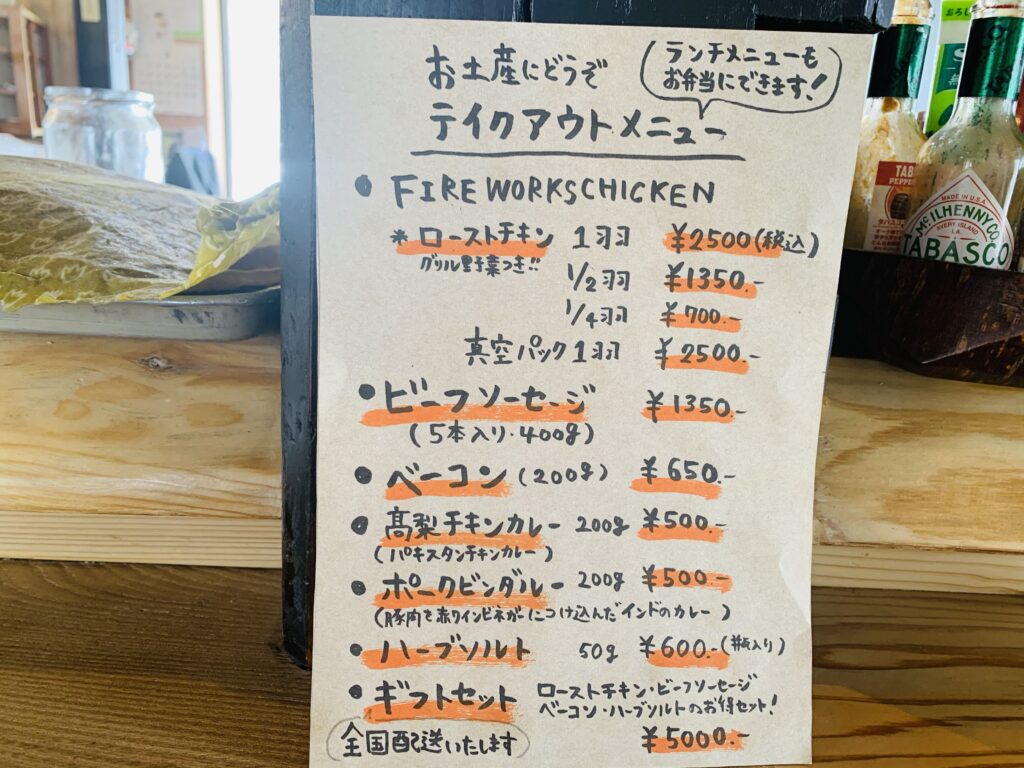 お土産にどうぞ
ランチメニューも
お弁当にできます!
テイクアウトメニュー
• FIRE WORKSCHICKEN
* ローストチキン 1羽 ¥2500(税込)
グリル野菜つき!!
1/2羽 ¥1350.-
1/4羽 ¥700.-
真空パック1羽 ¥2500.-
• ビーフソーセージ ¥1350.-
(5本入り・400g)
• ベーコン(200g) ¥650.-
• 高梨チキンカレー 200g ¥500.-
(パキスタンチキンカレー)
• ポークビンダルー 200g ¥500.-
(豚肉を赤ワインビネガーにつけ込んだインドのカレー)
• ハーブソルト 50g ¥600.-(瓶入り)
• ギフトセット ローストチキン・ビーフソーセージ
ベーコン・ハーブソルトのお得セット!
全国配送いたします ¥5000.-
TAB
PEPPER
MADE IN U.S.A.
McILHENNY CO.
AVERY ISLAND
LA.
TABASCO